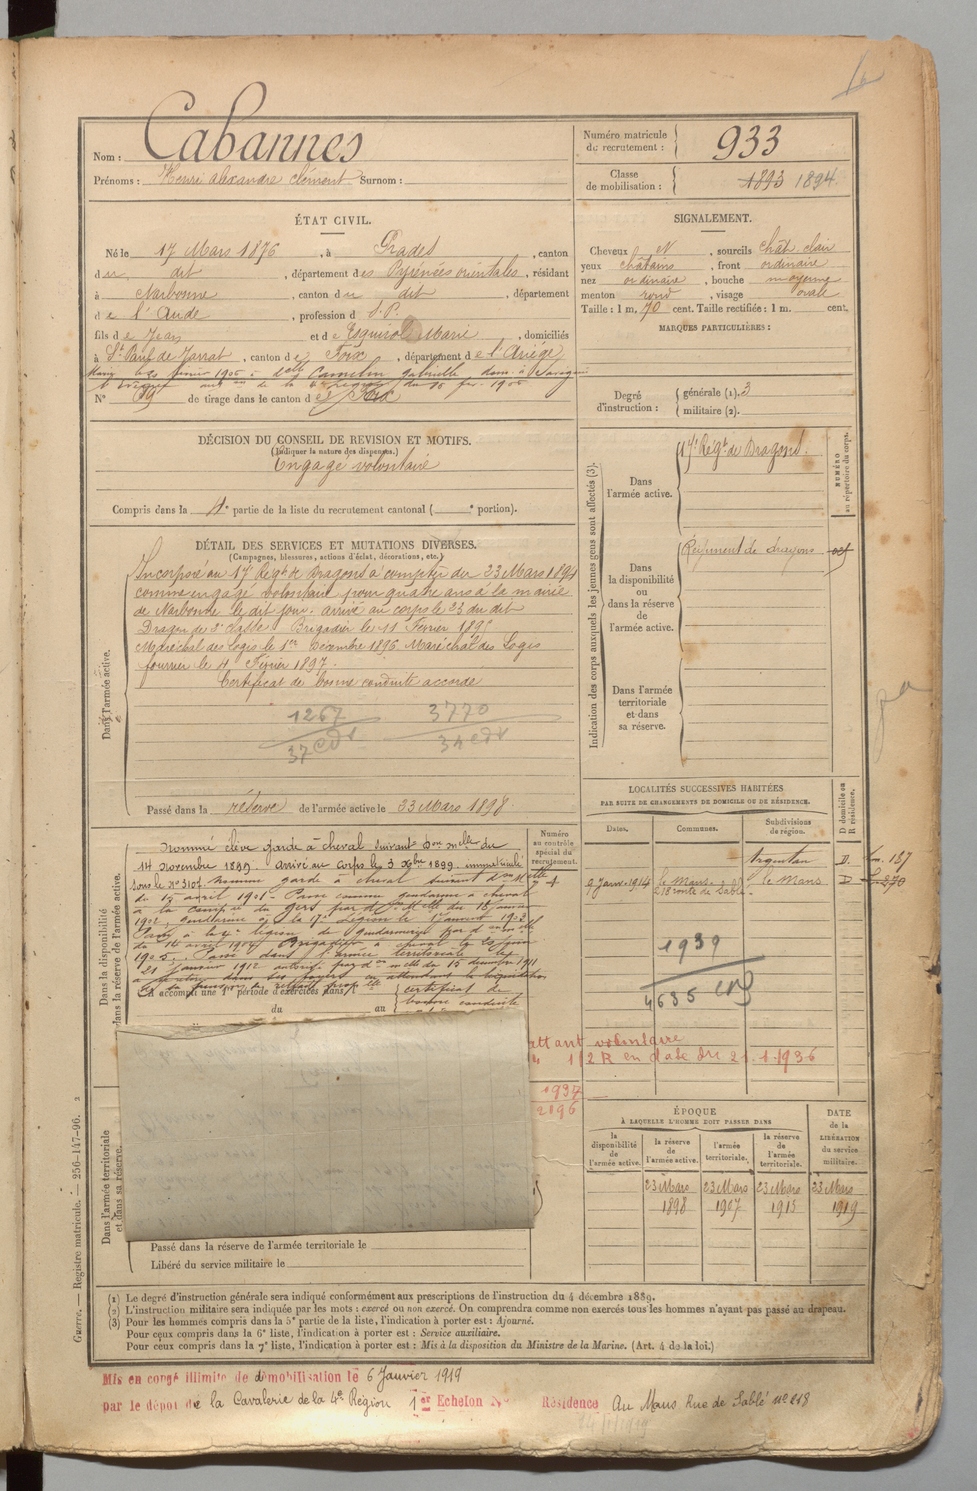 Nom : Cabannes
Prénoms : Henri Alexandre Clément Surnom :
Numéro matricule du recrutement : 933
Classe de mobilisation : 1893 1894
ÉTAT CIVIL.
Né le 17 Mars 1876, à Prades, canton
du dit, département des Pyrénées orientales, résidant
à Narbonne, canton du dit, département
de l'Aude, profession d S.P.
fils de Jean et de Esquirol Marie, domiciliés
à St Paul de Jarrat, canton de Foix, département de l'Ariège
N° 69 de tirage dans le canton de Foix
SIGNALEMENT.
Cheveux N, sourcils chât. clair
yeux châtains, front ordinaire
nez ordinaire, bouche moyenne
menton rond, visage ovale
Taille : 1 m. 70 cent. Taille rectifiée : 1 m. cent.
MARQUES PARTICULIÈRES :
Degré d'instruction : générale (1). 3
militaire (2).
DÉCISION DU CONSEIL DE REVISION ET MOTIFS.
(Indiquer la nature des dispenses.)
Engagé volontaire
Compris dans la 4e partie de la liste du recrutement cantonal ( e portion).
DÉTAIL DES SERVICES ET MUTATIONS DIVERSES.
(Campagnes, blessures, actions d'éclat, décorations, etc.)
Dans l'armée active.
Incorporé au 17e Régt de Dragons à compter du 23 Mars 1894
comme engagé volontaire pour quatre ans à la mairie
de Narbonne le dit jour. arrivé au corps le 23 du dit
Dragon de 2e classe Brigadier le 11 Février 1895
Maréchal des logis le 1er Décembre 1896 Maréchal des Logis
fourrier le 4 Février 1897.
Certificat de bonne conduite accordé
1267
3770
Passé dans la réserve de l'armée active le 23 Mars 1898.
Indication des corps auxquels les jeunes gens sont affectés (3).
NUMÉRO au répertoire du corps.
Dans l'armée active.
17e Régt de Dragons.
Dans la disponibilité ou dans la réserve de l'armée active.
Régiment de dragons
Dans l'armée territoriale et dans sa réserve.
LOCALITÉS SUCCESSIVES HABITÉES
PAR SUITE DE CHANGEMENTS DE DOMICILE OU DE RÉSIDENCE.
Dates. Communes. Subdivisions de région. D domicile ou R résidence.
Argentan D.
9 Janv. 1914 le Mans 218 route de Sablé le Mans D
1939
4635
Dans la disponibilité ou dans la réserve de l'armée active.
Numéro au contrôle spécial du recrutement.
Nommé élève garde à cheval suivant Don Melle du
14 novembre 1899. Arrivé au Corps le 3 xbre 1899. immatriculé
sous le No 3107 nommé garde à cheval suivant don Melle
du 15 avril 1901. Passé comme gendarme à cheval
à la compie du Gers par don Melle du 18 janvier
1902, gendarme à la 17e Légion le 1er janvier 1903
Passé à la 4e légion de gendarmerie par don melle
du 16 avril 1904 Brigadier à cheval le 25 juin
1905. Passé dans l'armée territoriale le
21 Janvier 1912 autorisé par don melle du 15 décembre 1911
A accompli une 1re période d'exercices dans l
du au
certificat de
bonne conduite
volontaire
1/2 R en date du 21.1.1936
1937
2896
Dans l'armée territoriale et dans sa réserve.
Passé dans la réserve de l'armée territoriale le
Libéré du service militaire le
ÉPOQUE
À LAQUELLE L'HOMME DOIT PASSER DANS
la disponibilité de l'armée active. la réserve de l'armée active. l'armée territoriale. la réserve de l'armée territoriale. DATE de la LIBÉRATION du service militaire.
23 Mars 1898 23 Mars 1907 23 Mars 1913 23 Mars 1919
(1) Le degré d'instruction générale sera indiqué conformément aux prescriptions de l'instruction du 4 décembre 1889.
(2) L'instruction militaire sera indiquée par les mots : exercé ou non exercé. On comprendra comme non exercés tous les hommes n'ayant pas passé au drapeau.
(3) Pour les hommes compris dans la 5e partie de la liste, l'indication à porter est : Ajourné.
Pour ceux compris dans la 6e liste, l'indication à porter est : Service auxiliaire.
Pour ceux compris dans la 7e liste, l'indication à porter est : Mis à la disposition du Ministre de la Marine. (Art. 4 de la loi.)
Guerre. — Registre matricule. — 256-147-96. 2
Mis en congé illimité de démobilisation le 6 Janvier 1919
par le dépôt de la Cavalerie de la 4e Région 1er Echelon N° Résidence Au Mans Rue de Sablé no 218